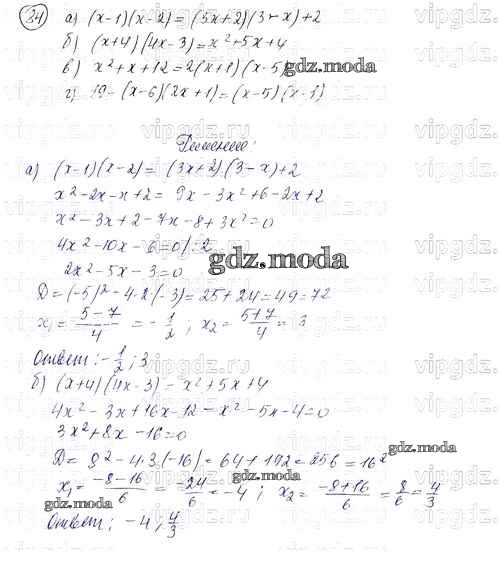 34 а) (x-1)(x-2)=(3x+2)(3-x)+2
б) (x+4)(4x-3)=x²+5x+4
в) x²+x+12=2(x+1)(x-5)
gdz.moda
г) 19-(x-6)(2x+1)=(x-5)(x-1)
Решение:
а) (x-1)(x-2)=(3x+2)(3-x)+2
x²-2x-x+2=9x-3x²+6-2x+2
x²-3x+2-7x-8+3x²=0
4x²-10x-6=0/:2
gdz.moda
2x²-5x-3=0
D=(-5)²-4·2(-3)=25+24=49=7²
x₁=5-7/4=-1/2; x₂=5+7/4=3
Ответ: -1/2; 3
б) (x+4)(4x-3)=x²+5x+4
4x²-3x+16x-12-x²-5x-4=0
3x²+8x-16=0
gdz.moda
D=8²-4·3(-16)=64+192=256=16²
x₁=-8-16/6=-24/6=-4; x₂=-8+16/6=8/6=4/3
gdz.moda
gdz.moda
Ответ: -4; 4/3